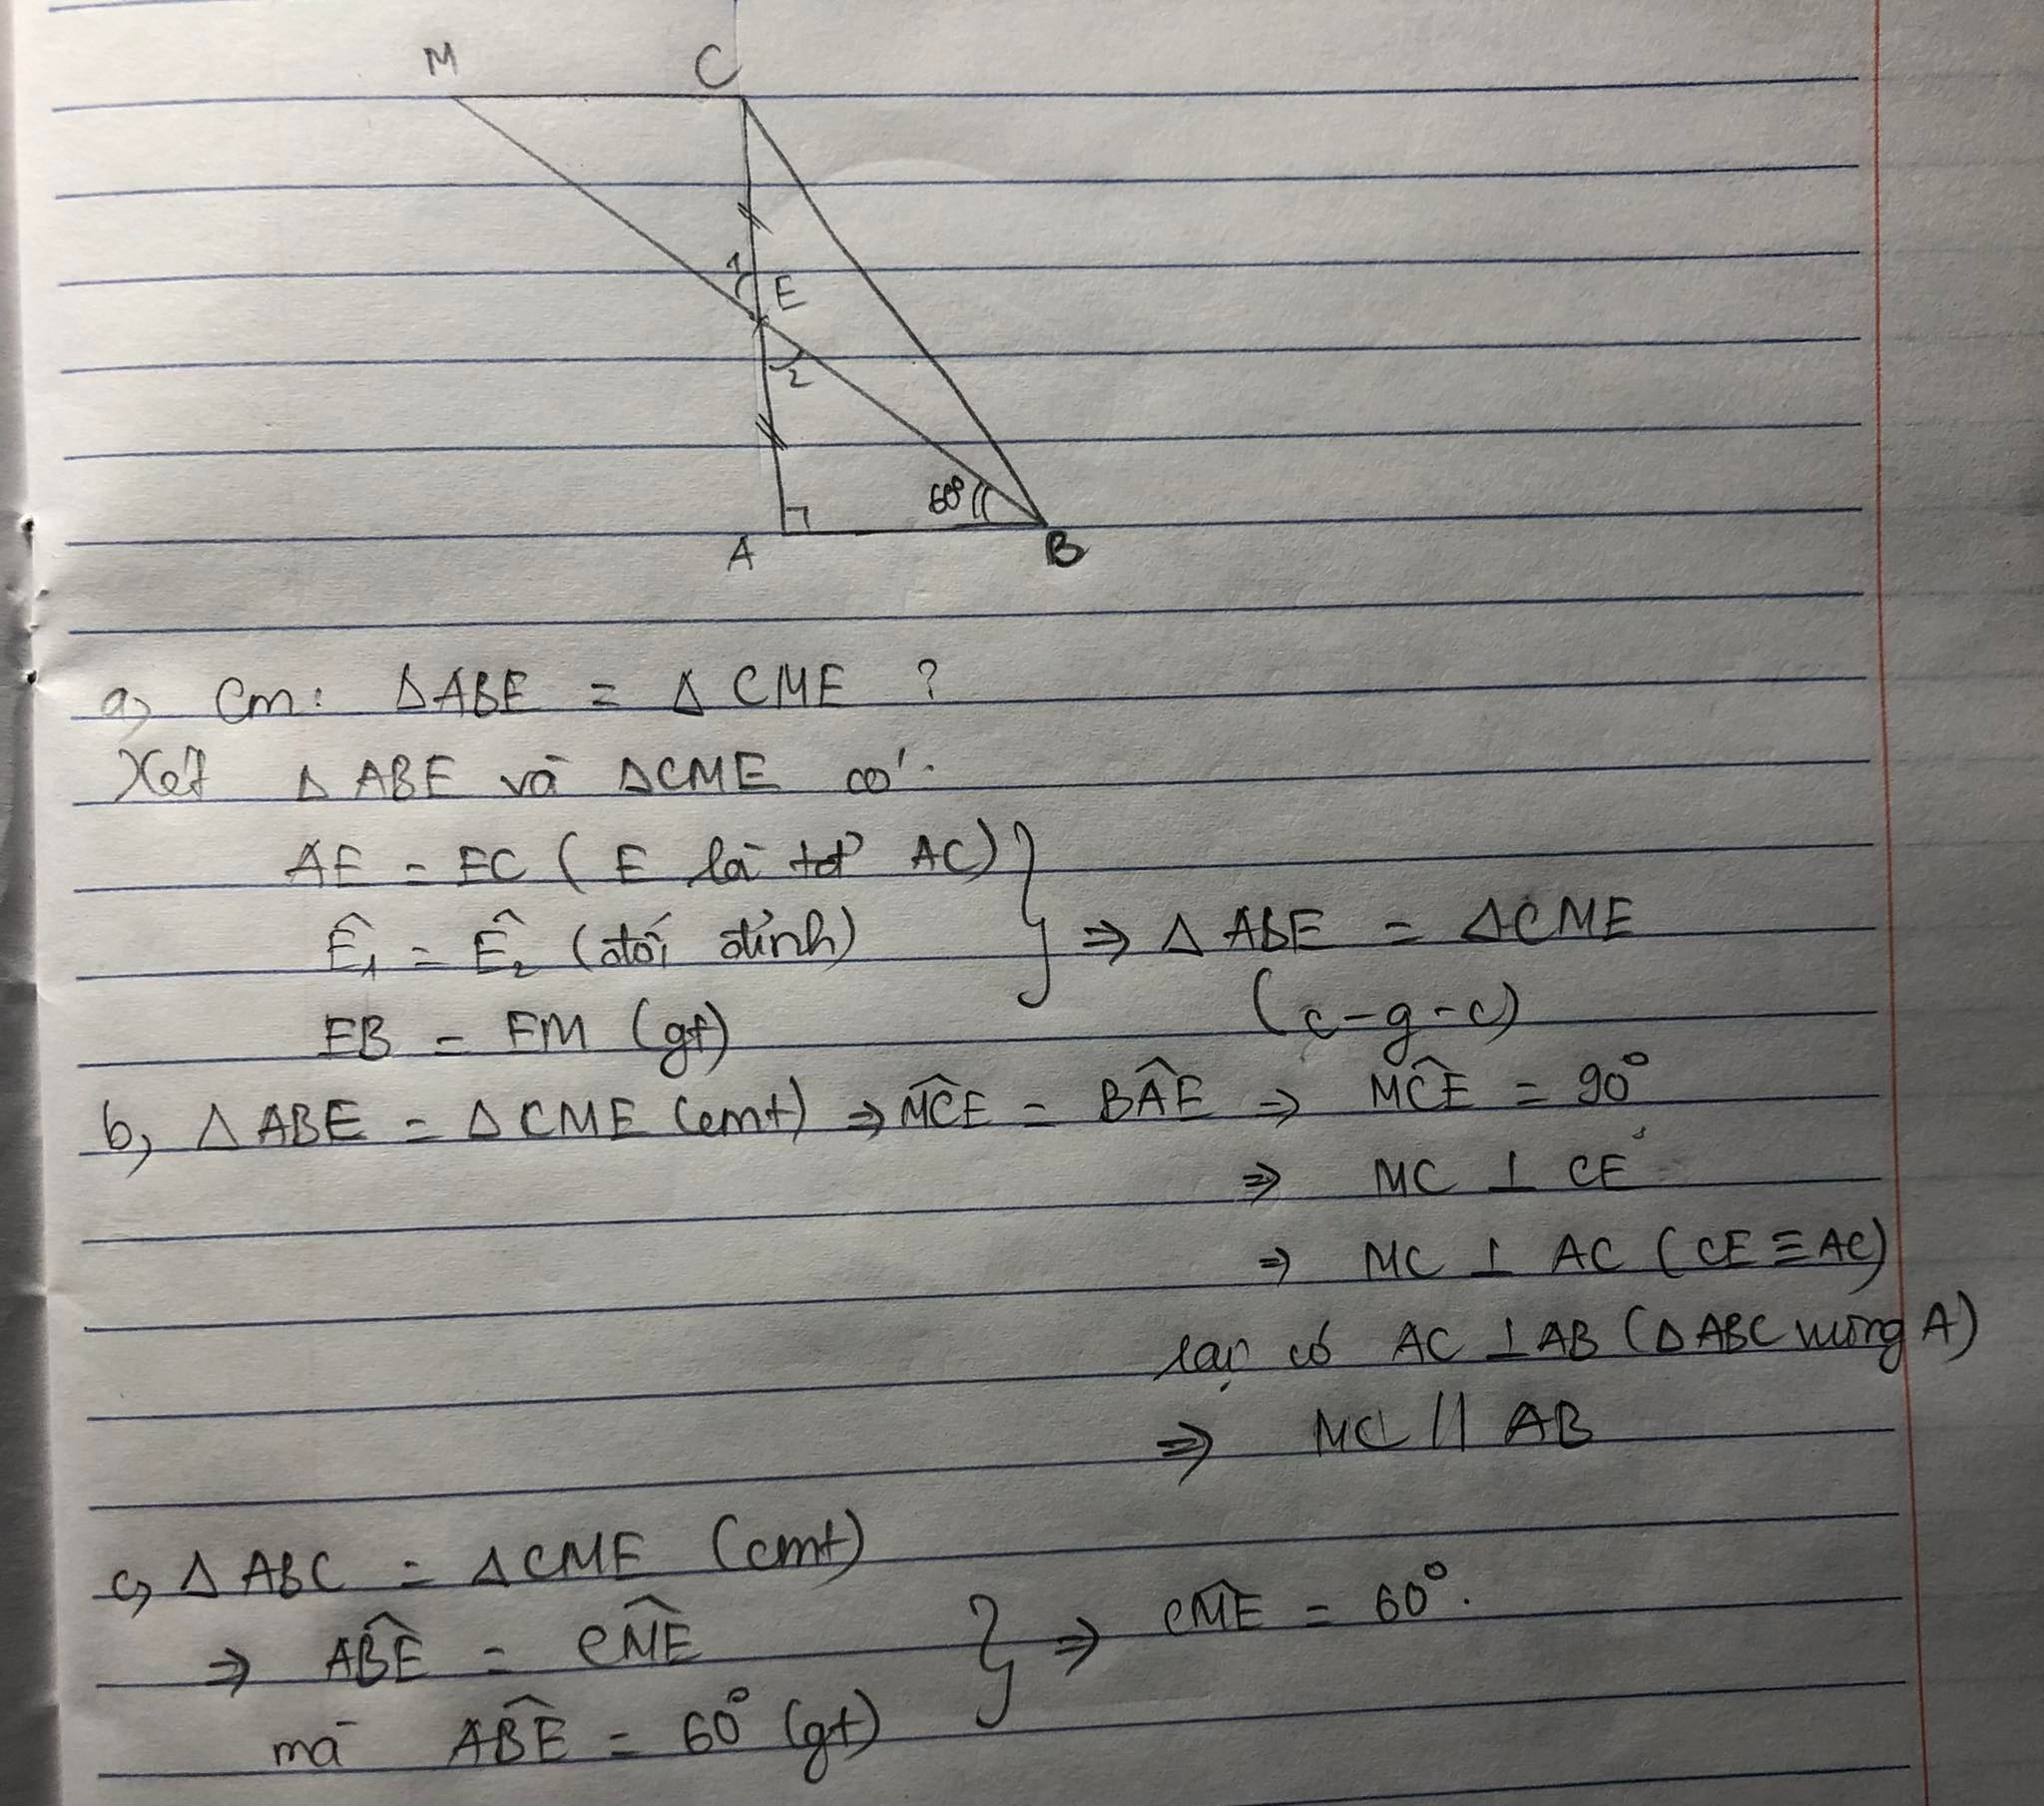 M C
1
E
2
60°
A B
a, Cm: Δ ABE = Δ CME ?
Xét Δ ABE và ΔCME có:
AE = EC ( E là tđ AC)
Ê₁ = Ê₂ (đối đỉnh)
⇒ Δ ABE = ΔCME
EB = EM (gt)
(c-g-c)
b, Δ ABE = Δ CME (cmt) ⇒ MĈE = BÂE ⇒ MĈE = 90°
⇒ MC ⊥ CE
⇒ MC ⊥ AC ( CE ≡ AC)
lại có AC ⊥ AB (Δ ABC vuông A)
⇒ MC // AB
c, Δ ABC = Δ CME (cmt)
⇒ AB̂E = CM̂E
⇒ CM̂E = 60°.
mà AB̂E = 60° (gt)